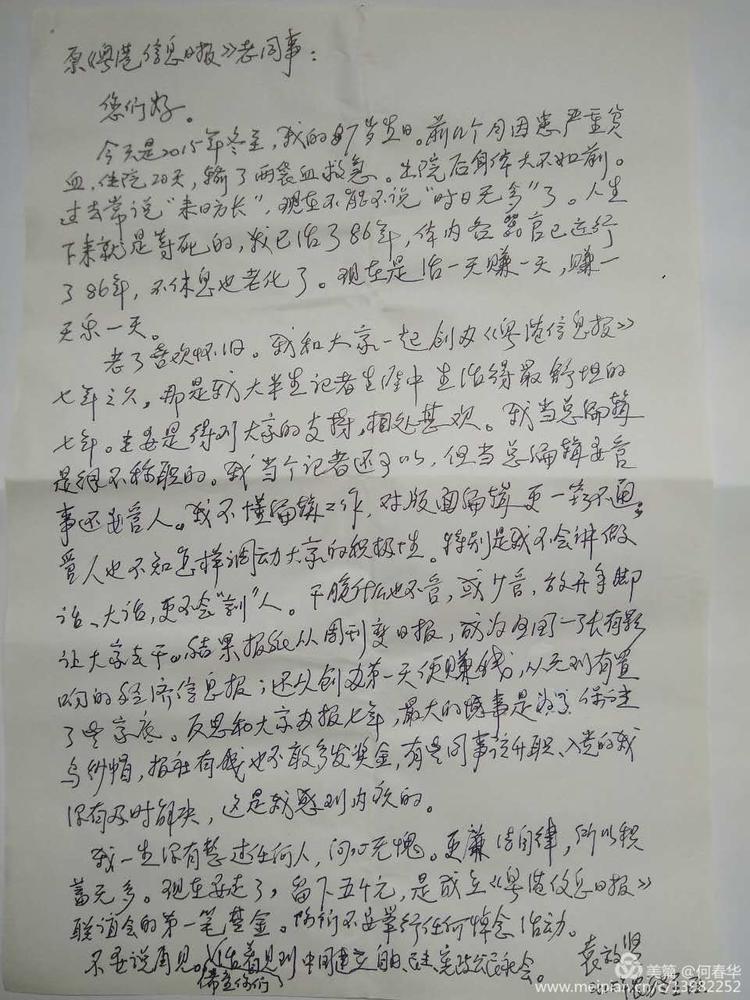 原《粤港信息日报》老同事：
您们好。
今天是2015年冬至，我的87岁生日。前几个月因患严重贫
血，住院20天，输了两袋血救急。出院后身体大不如前。
过去常说“来日方长”，现在不能不说“时日无多”了。人生
下来就是等死的，我已活了86年，体内各器官已运行
了86年，不休息也老化了。现在是活一天赚一天，赚一
天乐一天。
老了喜欢怀旧。我和大家一起创办《粤港信息报》
七年之久，那是我大半生记者生涯中生活得最舒坦的
七年。主要是得到大家的支持，相处甚欢。我当总编辑
是很不称职的。我当个记者还可以，但当总编辑要管
事还要管人。我不懂编辑工作，对版面编辑更一窍不通。
管人也不知怎样调动大家的积极性。特别是我不会讲假
话、大话，更不会“训”人。干脆什么也不管，或少管，放开手脚
让大家去干。结果报纸从周刊变日报，成为全国一张有影
响的经济信息报；还从创办第一天便赚钱，从无到有置
了些家底。反思和大家办报七年，最大的憾事是为了保住
乌纱帽，报社有钱也不敢多发奖金，有些同事该升职、入党的我
没有及时解决，这是我感到内疚的。
我一生没有整过任何人，问心无愧。更廉洁自律，所以积
蓄无多。现在要走了，留下五千元，是成立《粤港信息日报》
联谊会的第一笔基金。 不要举行任何悼念活动。
不要说再见。 活着见到中国建立自由、民主、宪政公民社会。
你们
美篇 @何春华
www.meipian.cn/c/13982252